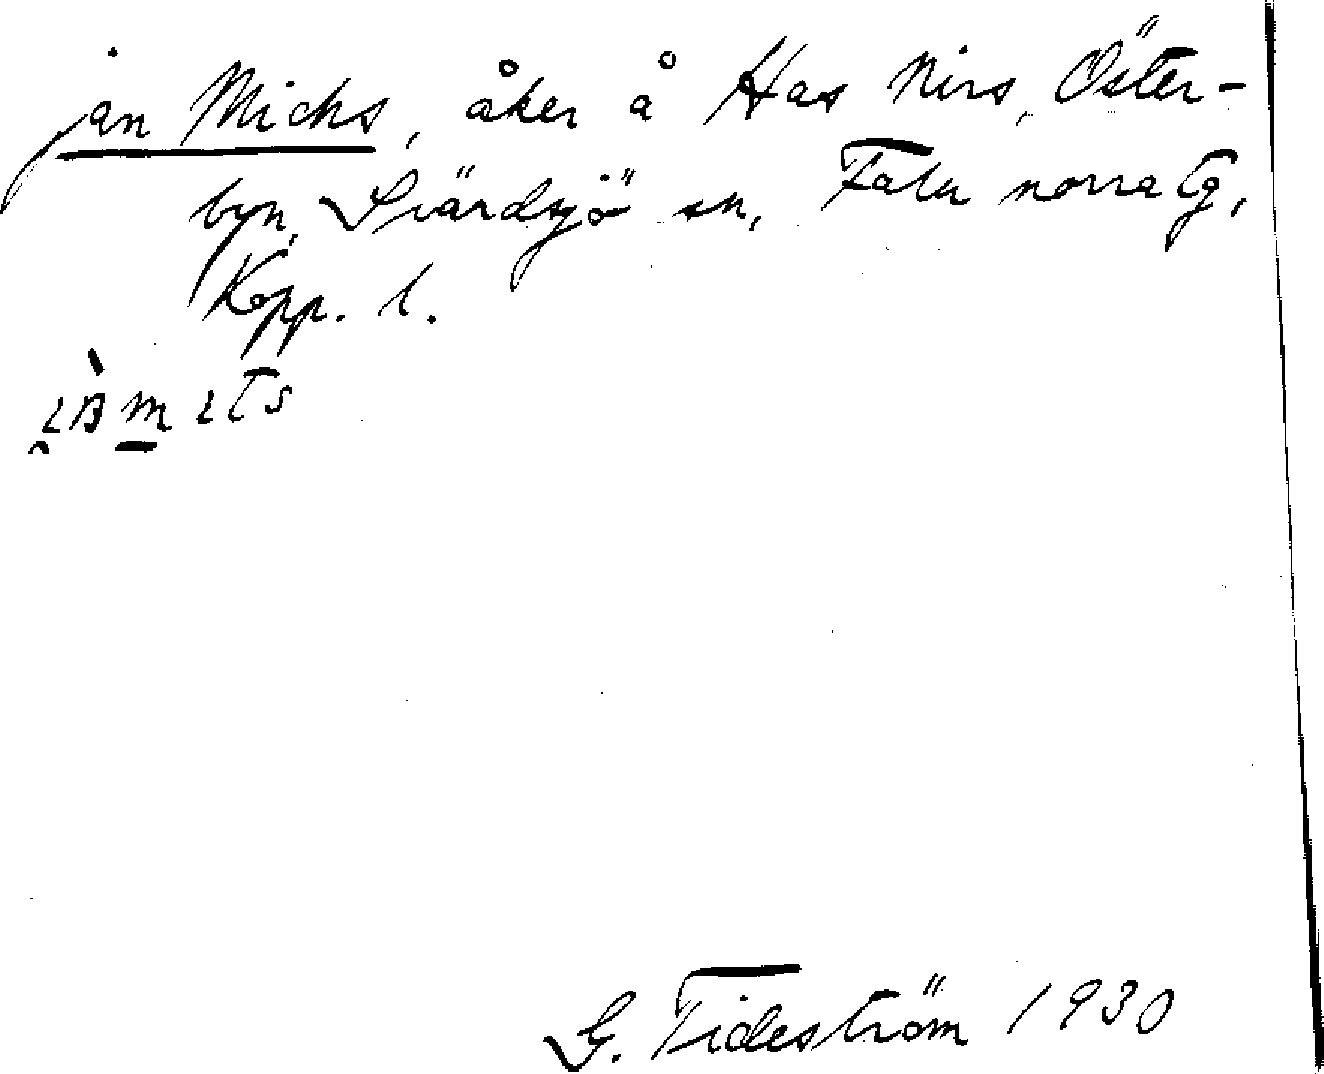 jan Michs, åker å Has Nirs, Öster-
byn, Svärdsjö sn, Falu norra tg,
Kopp. l.
G. Tideström 1930